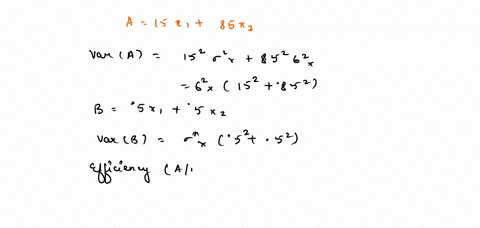 A = 15 x₁ + 85 x₂
Var (A) = 15² σ²x + 85² 6²x
= 6²x ( 15² + .85²)
B = .5 x₁ + .5 x₂
Var (B) = σ²x (.5² + .5²)
Efficiency (A/